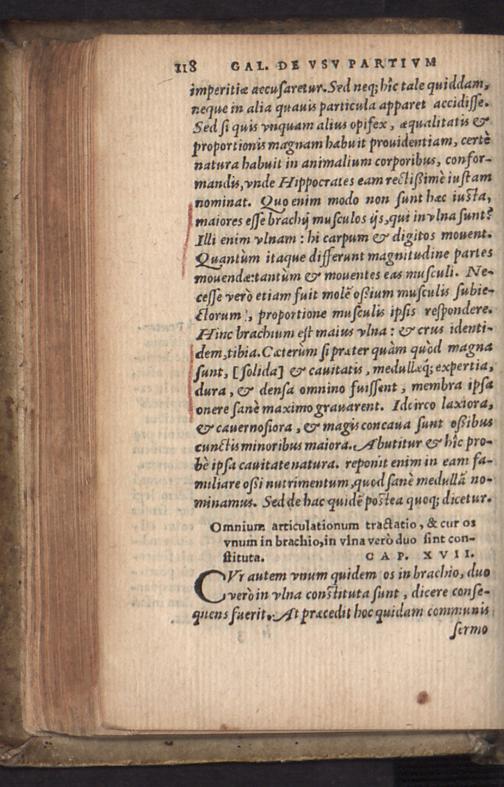 118 GAL. DE VSV PARTIVM
imperitiæ accusaretur. Sed neq; hîc tale quiddam,
neque in alia quauis particula apparet accidisse.
Sed si quis vnquam alius opifex, æqualitatis &
proportionis magnam habuit prouidentiam, certè
natura habuit in animalium corporibus, confor-
mandis, vnde Hippocrates eam rectißimè iustam
nominat. Quo enim modo non sunt hæc iusta,
maiores esse brachij musculos ijs, qui in vlna sunt?
Illi enim vlnam: hi carpum & digitos mouent.
Quantùm itaque differunt magnitudine partes
mouendæ: tantùm & mouentes eas musculi. Ne-
cesse verò etiam fuit molẽ oßium musculis subie-
ctorum, proportione musculis ipsis respondere.
Hinc brachium est maius vlna: & crus identi-
dem, tibia. Cæterum si præter quàm quòd magna
sunt, [solida] & cauitatis, medullæq; expertia,
dura, & densa omnino fuissent, membra ipsa
onere sanè maximo grauarent. Idcirco laxiora,
& cauernosiora, & magis concaua sunt oßibus
cunctis minoribus maiora. Abutitur & hîc pro-
bè ipsa cauitate natura. reponit enim in eam fa-
miliare oßi nutrimentum, quod sanè medullã no-
minamus. Sed de hac quidẽ postea quoq; dicetur.
Omnium articulationum tractatio, & cur os
vnum in brachio, in vlna verò duo sint con-
stituta. CAP. XVII.
CVr autem vnum quidem os in brachio, duo
verò in vlna constituta sunt, dicere conse-
quens fuerit. At præcedit hoc quidam communis
sermo